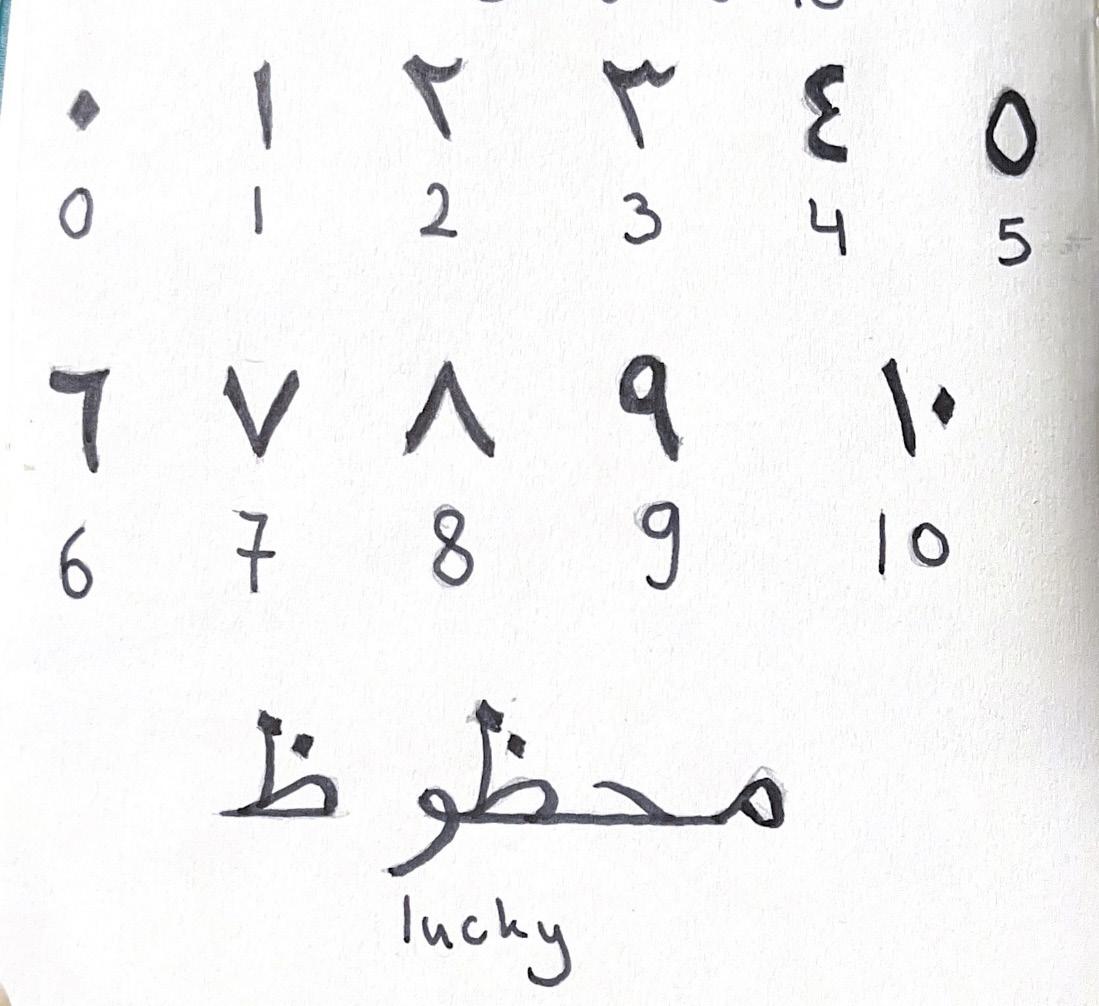 ٠ ١ ٢ ٣ ٤ ٥
0 1 2 3 4 5
٦ ٧ ٨ ٩ ١٠
6 7 8 9 10
محظوظ
lucky